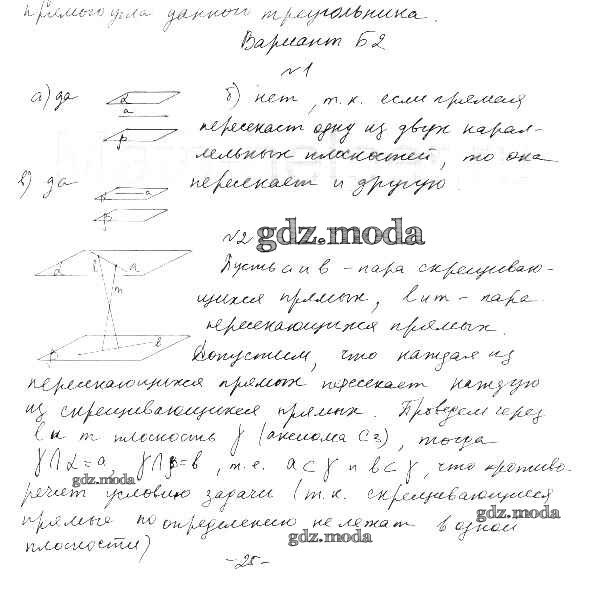 прямого угла данной треугольника.
Вариант Б2
№1
а) да
α
а
β
б) нет, т.к. если прямая
пересекает одну из двух парал-
лельных плоскостей, то она
пересекает и другую
в) да
а
β
№2
gdz.moda
α
l
а
m
β
в
Пусть а и в - пара скрещиваю-
щихся прямых, l и m - пара
пересекающихся прямых.
Допустим, что каждая из
пересекающихся прямых пересекает каждую
из скрещивающихся прямых. Проведем через
l и m плоскость γ (аксиома С2), тогда
γ∩α=а, γ∩β=в, т.е. а⊂γ и в⊂γ, что противо-
gdz.moda
речит условию задачи (т.к. скрещивающиеся
прямые по определению не лежат в одной
gdz.moda
плоскости)
gdz.moda
-25-